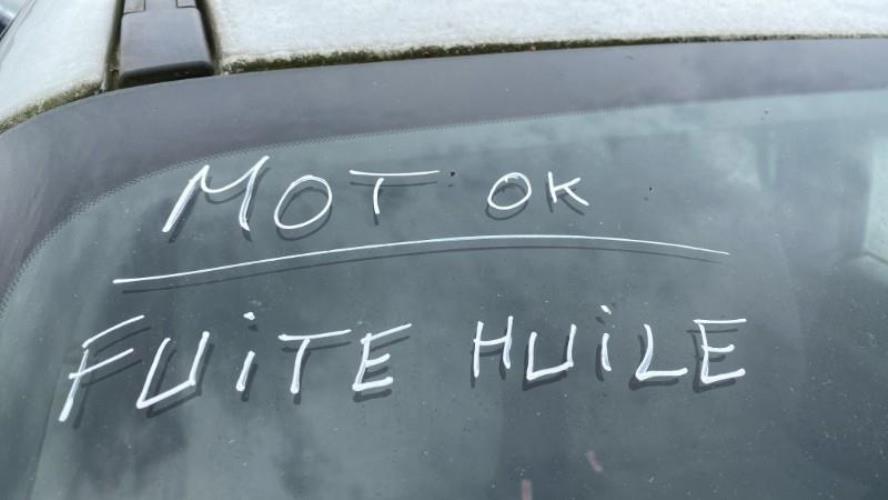 MOT OK
FUiTE HUiLE